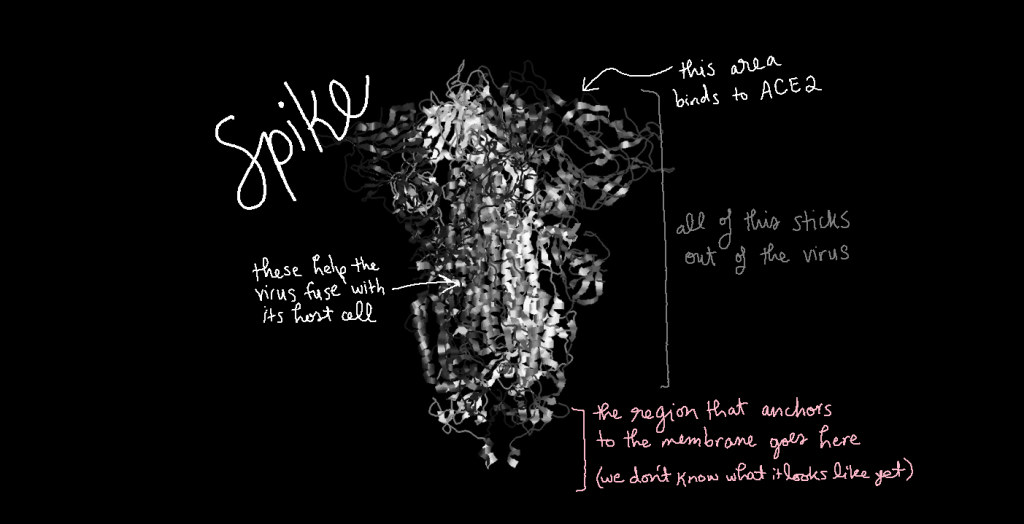 Spike
this area
binds to ACE2
all of this sticks
out of the virus
these help the
virus fuse with
its host cell
the region that anchors
to the membrane goes here
(we don't know what it looks like yet)